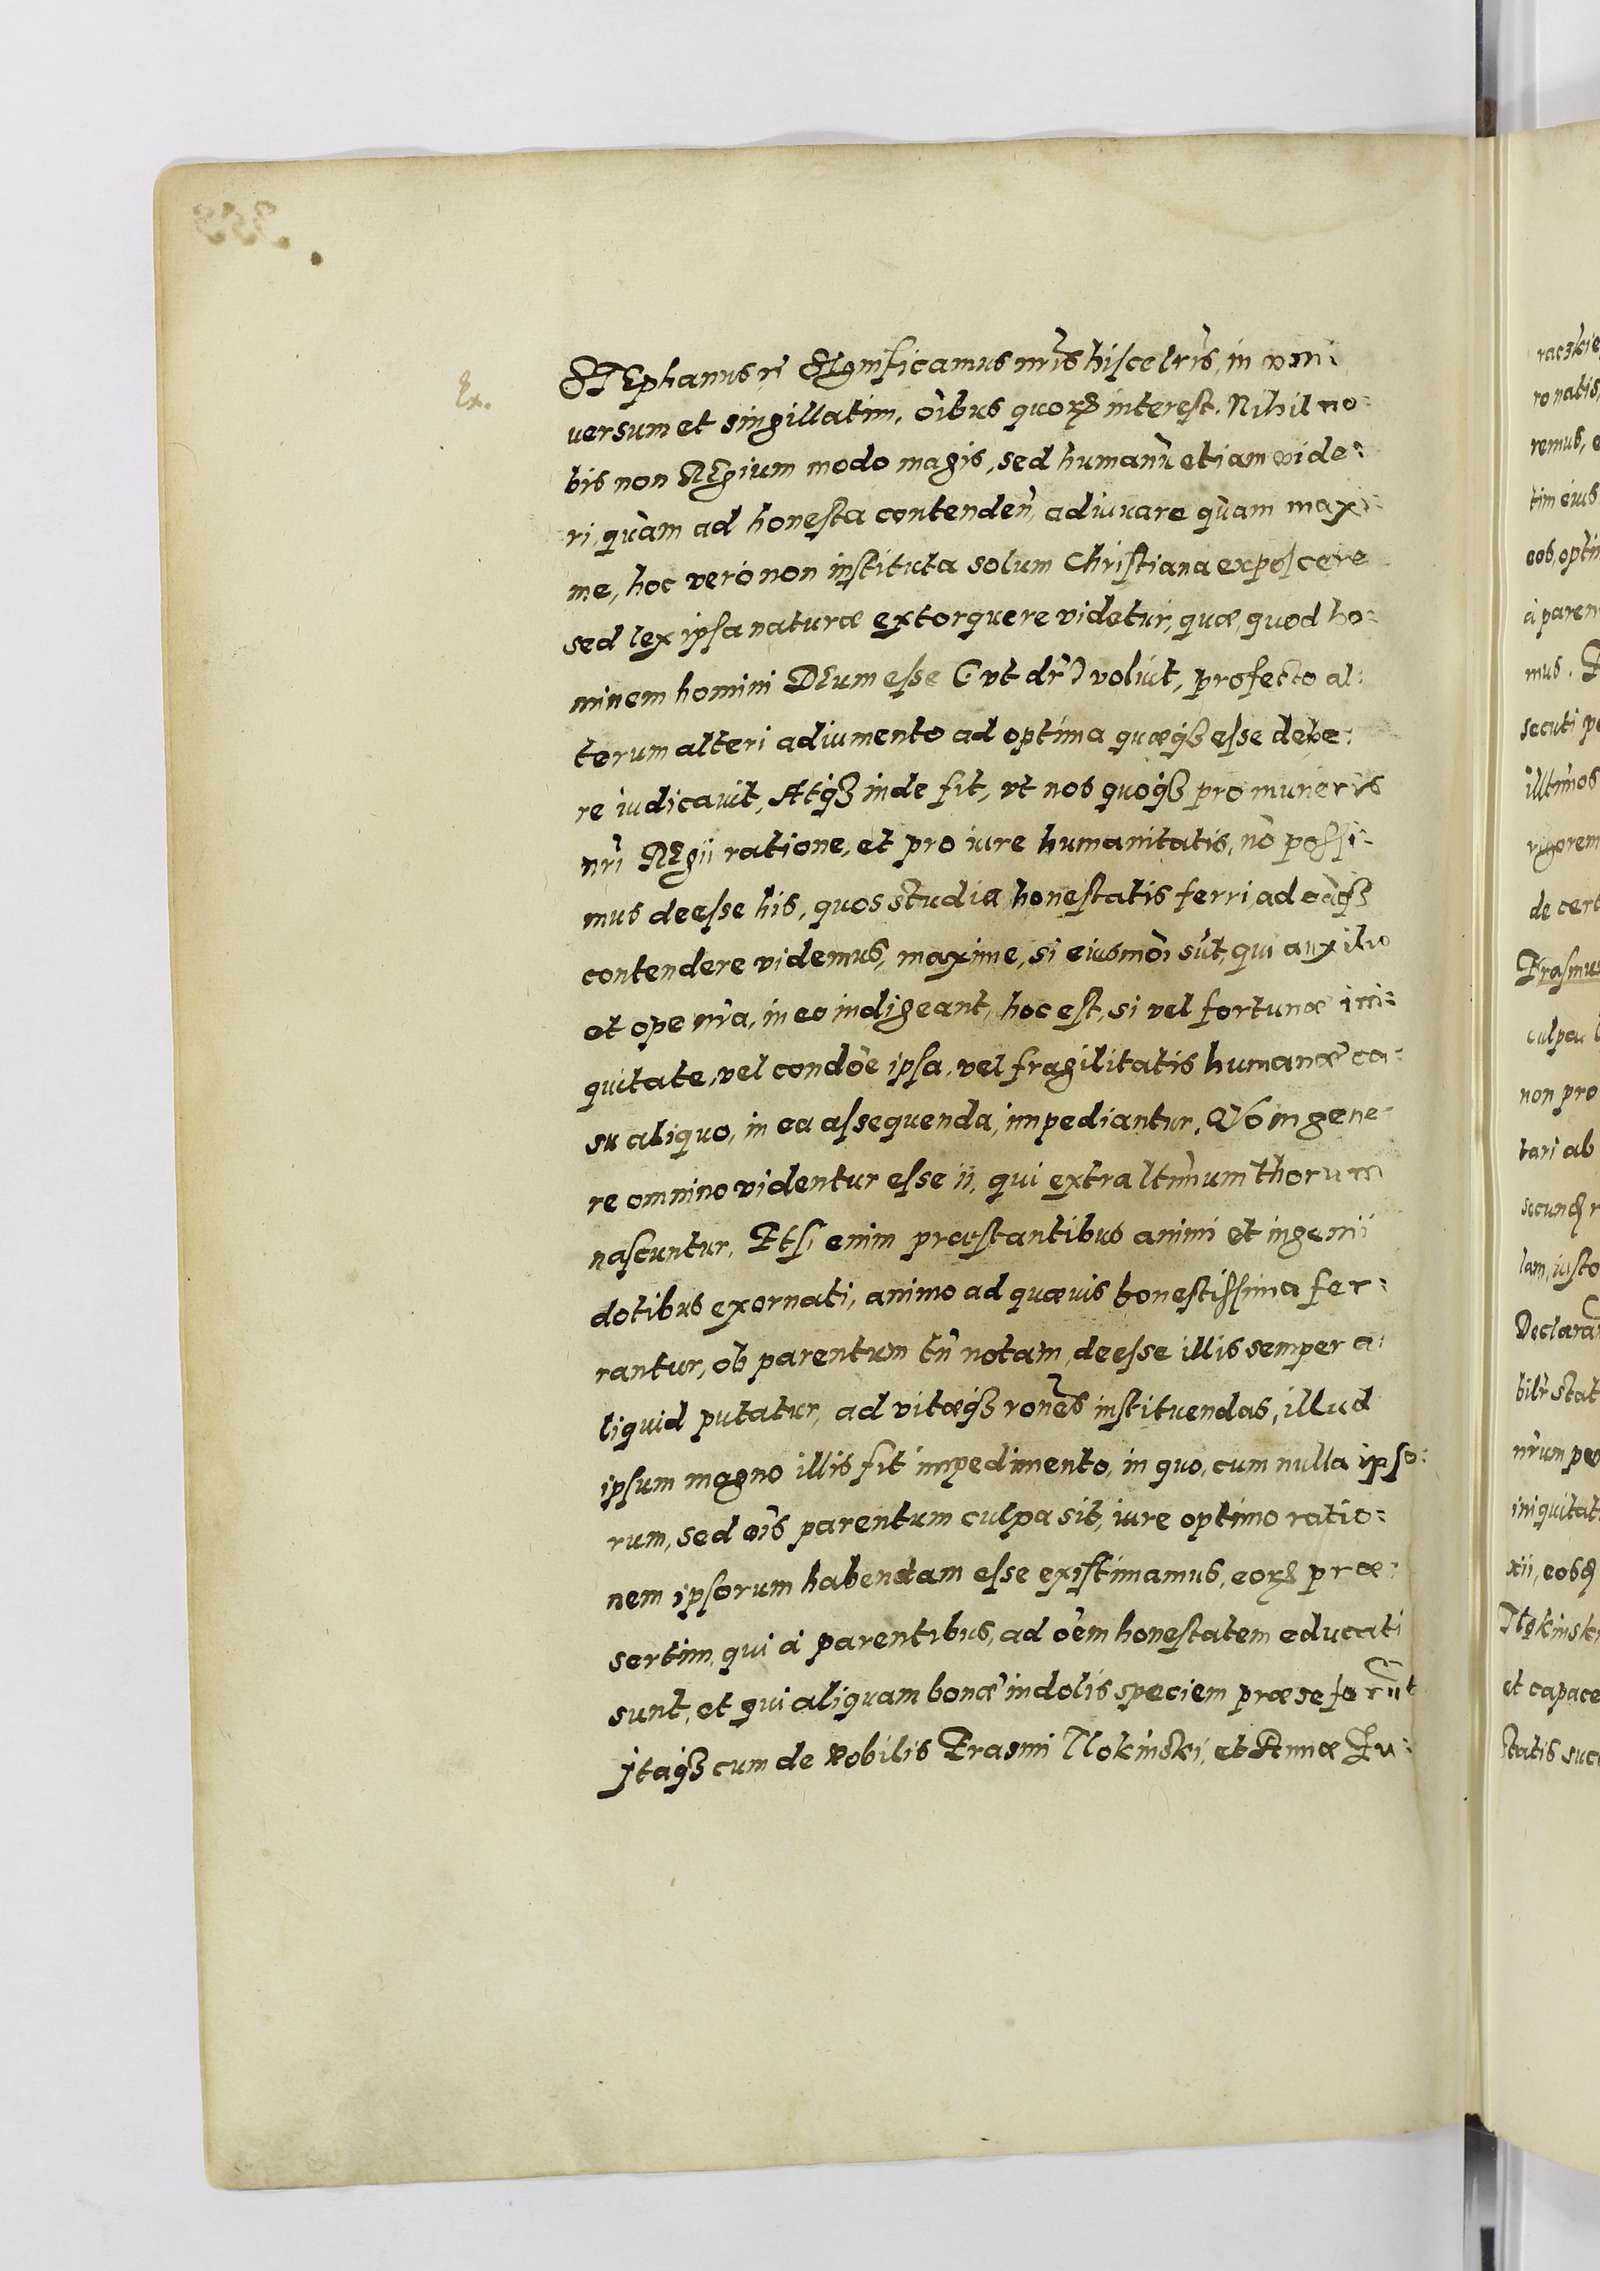 Ex.
STEphanus ꝛc̄ SIgnificamus nr̃is hisce lr̃is, in vni
uersum et singillatim, oĩbus quoꝝ interest. Nihil no:
bis non REgium modo magis, sed humanũ etiam vide:
ri, quàm ad honesta contendeñ, adiuuare quàm maxi:
me, hoc verò non instituta solum Christiana exposcere
sed lex ipsa naturæ extorquere videtur, quæ, quod ho:
minem homini DEum esse (vt dr̃) voluit, profecto al:
terum alteri adiumento ad optima quæqȝ esse debe:
re iudicauit, Atqȝ inde fit, vt nos quoqȝ pro muneris
nr̃i REgii ratione, et pro iure humanitatis, nõ possi:
mus deesse his, quos studia honestatis ferri, ad eãqȝ
contendere videmus, maxime, si eiusmõi sũt, qui auxilio
et ope nr̃a, in eo indigeant, hoc est, si vel fortunæ ini:
quitate, vel condõe ipsa, vel fragilitatis humanæ ca:
su aliquo, in ea assequenda, impediantur, Quo in gene:
re omnino videntur esse ii, qui extra ltĩmum thorum
nascuntur, Etsi enim præstantibus animi et ingenii
dotibus exornati, animo ad quævis honestissima fer:
rantur, ob parentum tñ notam, deesse illis semper a:
liquid putatur, ad vitæqȝ rões instituendas, illud
ipsum magno illis fit impedimento, in quo, cum nulla ipso:
rum, sed oĩs parentum culpa sit, iure optimo ratio:
nem ipsorum habendam esse existimamus, eoꝝ præ:
sertim, qui à parentibus, ad oẽm honestatem educati
sunt, et qui aliquam bonæ indolis speciem præ se ferũt
Itaqȝ cum de Nobilis Erasmi Ilokinski, et Annæ Zu:
raczkie
ro natis,
remus, e
tim eius
eos, optim
à paren
mus. E
secuti pe
illtĩmos
rigorem
de cert
Erasmus
culpa l
non pro
tari ab
secunꝗ r
lam, iusto
Declaran
bilr̃ stat
nr̃um pe
iniquitat
xii, eosꝗ
Ilokinski
et capace
statis succ